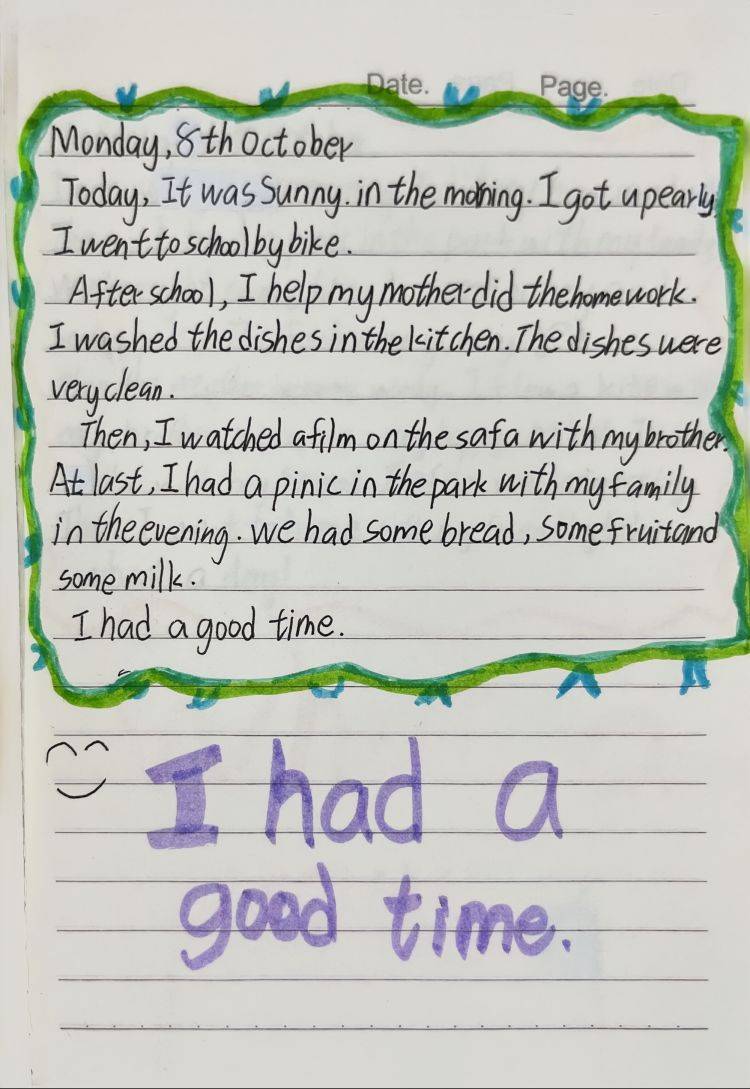 Date. Page.
Monday, 8th October
Today, It was Sunny. in the morning. I got up early,
I went to school by bike.
After school, I help my mother did the homework.
I washed the dishes in the kitchen. The dishes were
very clean.
Then, I watched a film on the safa with my brother.
At last, I had a pinic in the park with my family
in the evening. we had some bread, some fruit and
some milk.
I had a good time.
I had a
good time.